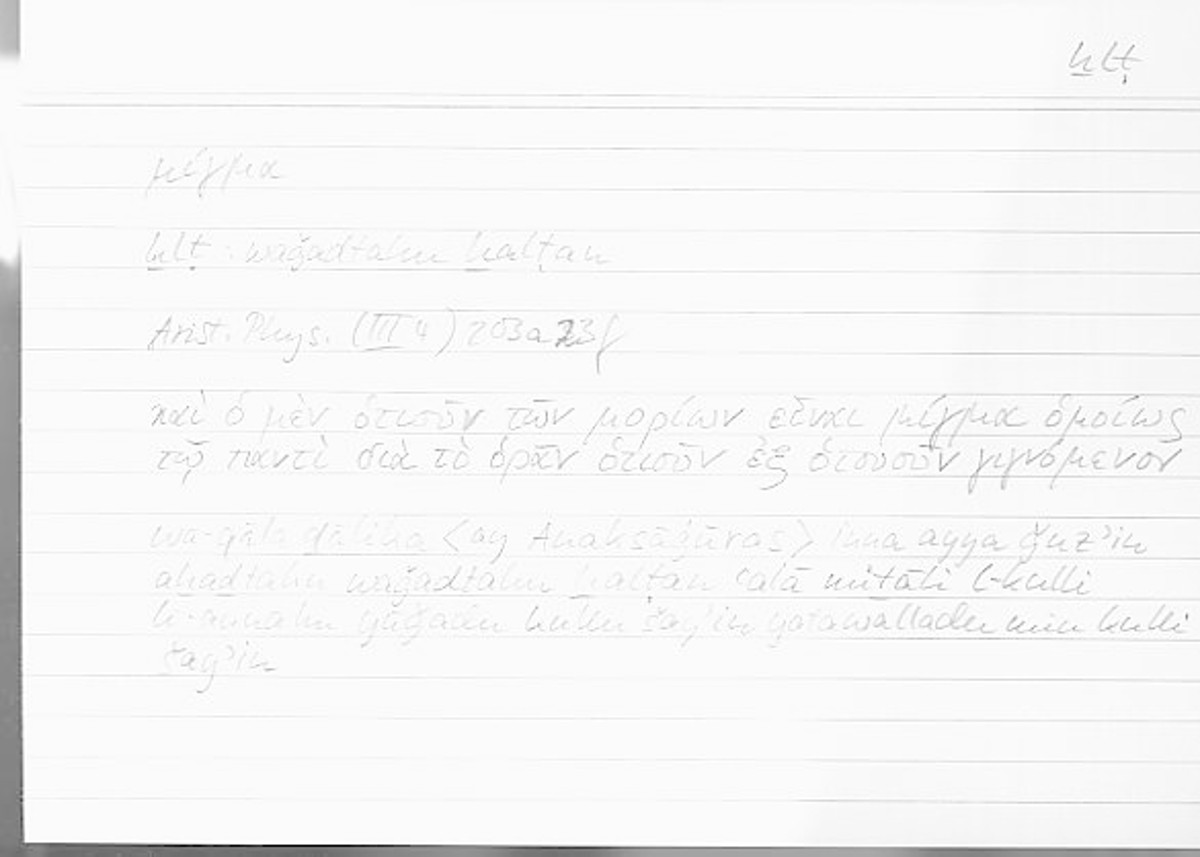 ḫlṭ
μίγμα
ḫlṭ : waǧadtahu ḫalṭan
Arist. Phys. (III 4) 203a23f
καὶ ὁ μὲν ὁτιοῦν τῶν μορίων εἶναι μίγμα ὁμοίως
τῷ παντὶ διὰ τὸ ὁρᾶν ὁτιοῦν ἐξ ὁτουοῦν γιγνόμενον
wa-qāla ḏālika <ay Anaksāġūras> inna ayya ǧuz'in
aḫaḏtahu waǧadtahu ḫalṭan ʿalā miṯāli l-kulli
li-annahu yūǧadu kullu šay'in yatawalladu min kulli
šay'in